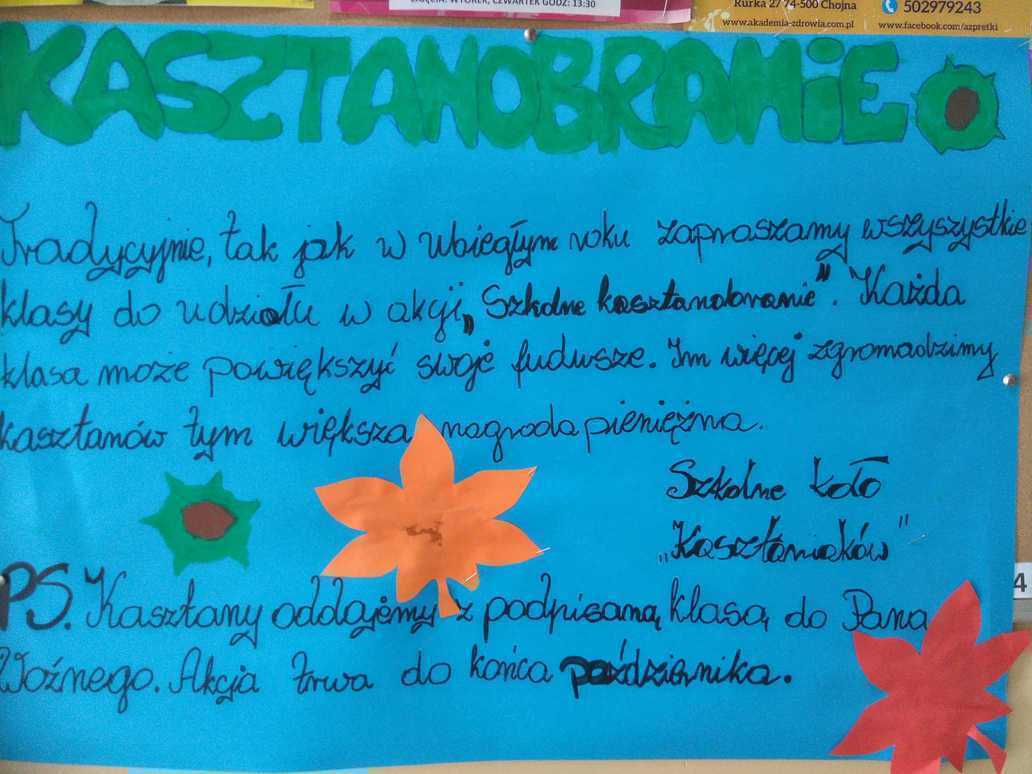 ZAJĘCIA: WTOREK, CZWARTEK GODZ: 13:30
Rurka 27 74-500 Chojna
502979243
www.akademia-zdrowia.com.pl
www.facebook.com/azpretki
KASZTANOBRANIE
Tradycyjnie, tak jak w ubiegłym roku zapraszamy wszyszystkie
klasy do udziału w akcji „Szkolne kasztanobranie". Każda
klasa może powiększyć swoje fudusze. Im więcej zgromadzimy
kasztanów tym większa nagroda pieniężna.
Szkolne koło
„Kasztaniaków"
PS. Kasztany oddajemy z podpisaną klasą do Pana
Woźnego. Akcja trwa do końca października.
4